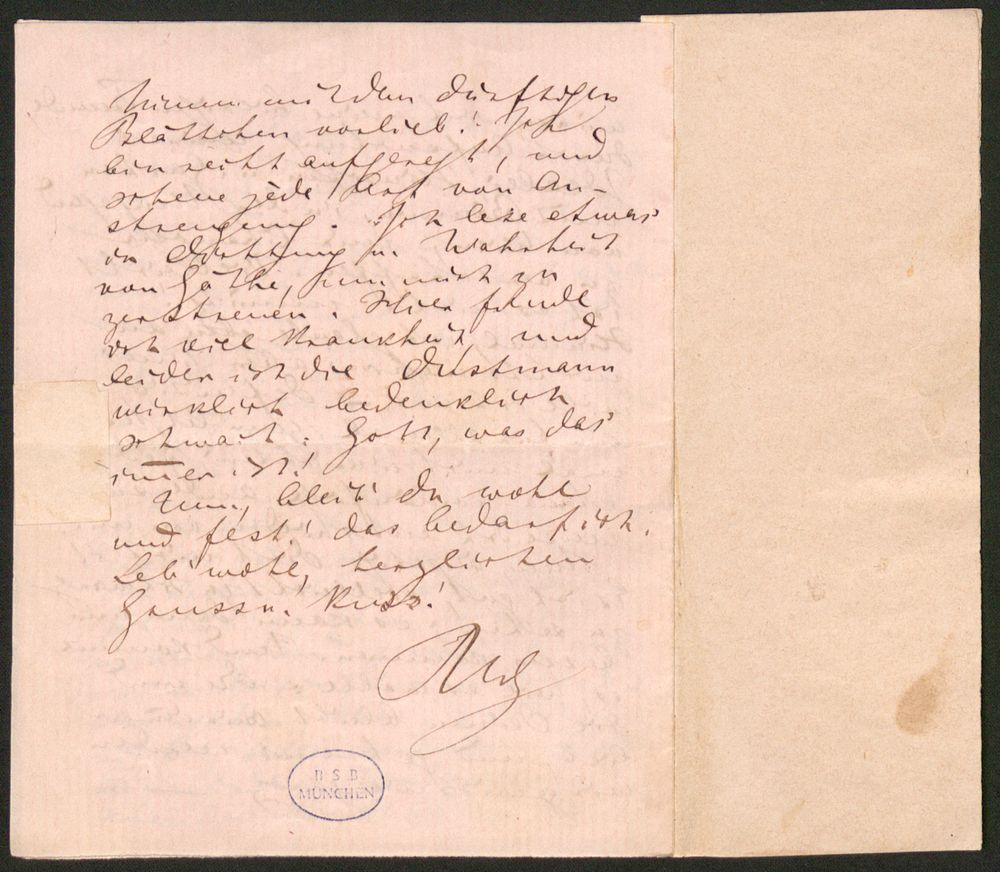 Nimm mit dem dürftigen
Blättchen vorlieb! Ich
bin recht aufgeregt, und
scheue jede Art von An-
strengung. Ich lese etwas
in Dichtung u. Wahrheit
von Göthe, um mich zu
zerstreuen. Hier finde
ich viel Krankheit, und
leider ist die Dustmann
wirklich bedenklich
schwach: Gott, was das
im̅er ist!
Nun, bleib' du wohl
und fest! das bedarf ich.
Leb' wohl, herzlichen
Gruss u. Kuss!
BSB
MÜNCHEN